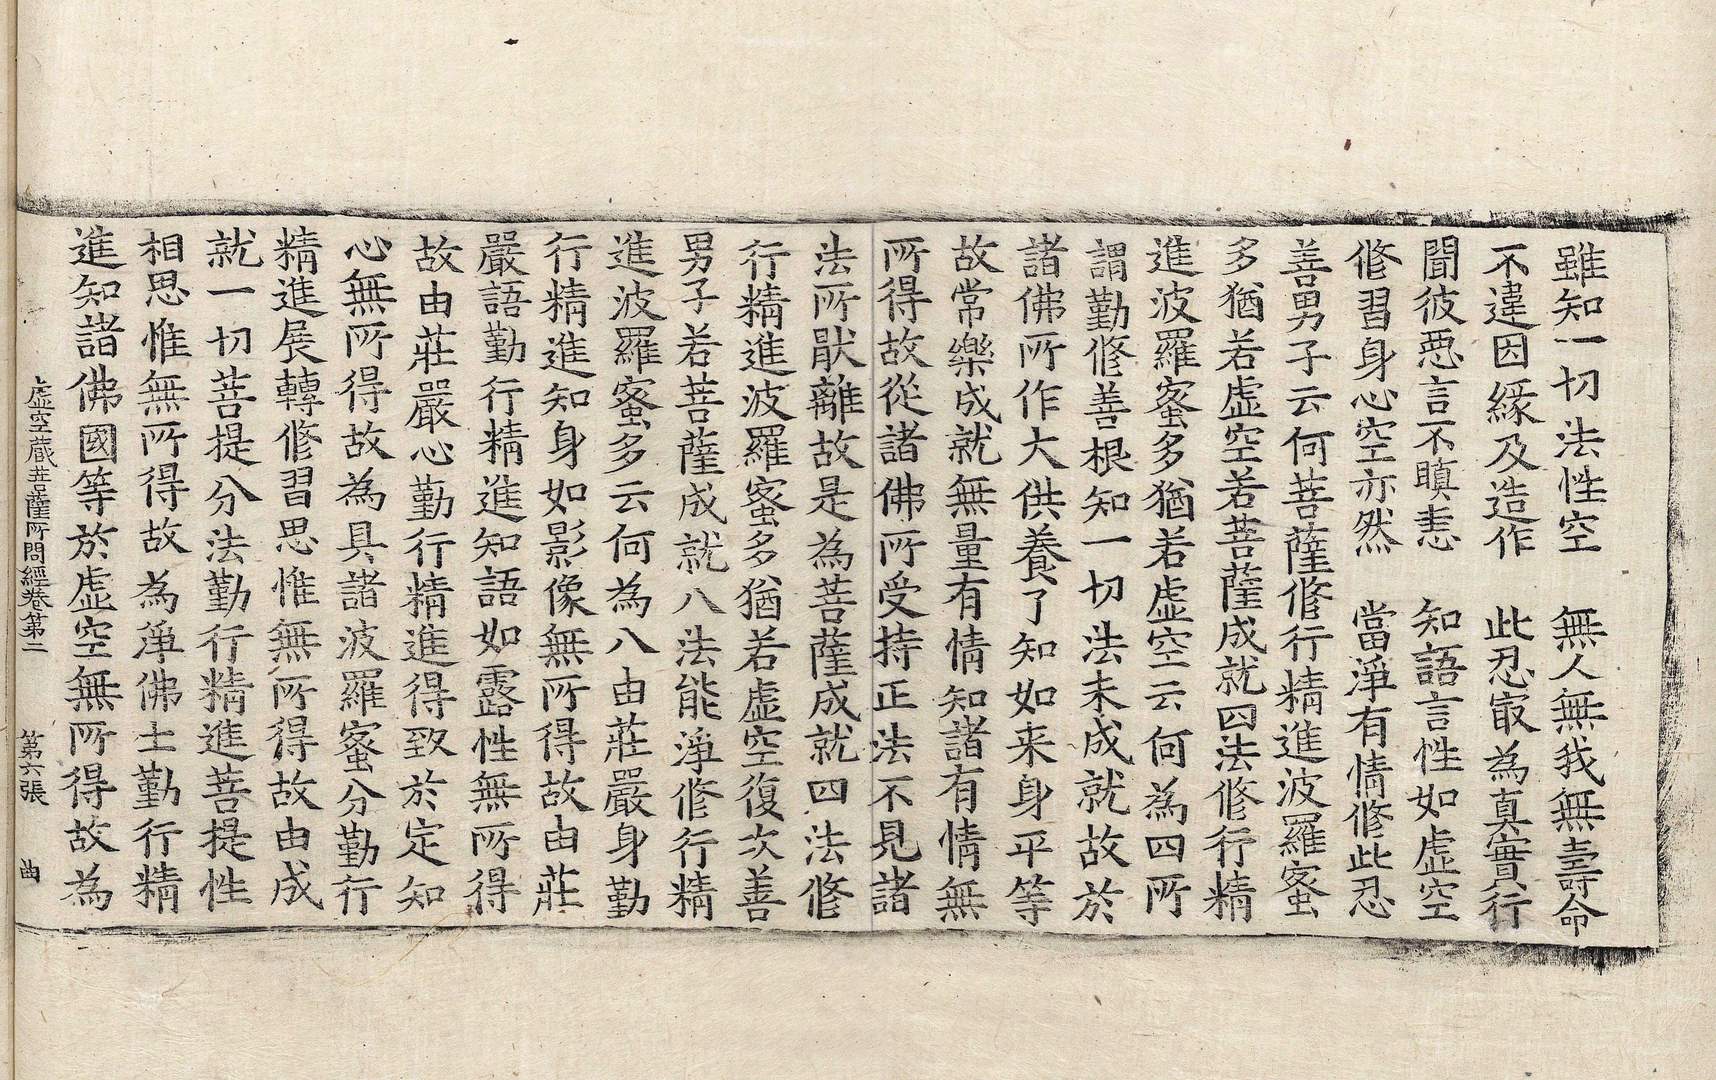 雖知一切法性空　無人無我無壽命
不違因緣及造作　此忍㝡為真實行
聞彼惡言不瞋恚　知語言性如虛空
修習身心空亦然　當淨有情修此忍
善男子云何菩薩修行精進波羅蜜
多猶若虛空若菩薩成就四法修行精
進波羅蜜多猶若虛空云何為四所
謂勤修善根知一切法未成就故於
諸佛所作大供養了知如来身平等
故常樂成就無量有情知諸有情無
所得故從諸佛所受持正法不見諸
法所猒離故是為菩薩成就四法修
行精進波羅蜜多猶若虛空復次善
男子若菩薩成就八法能淨修行精
進波羅蜜多云何為八由莊嚴身勤
行精進知身如影像無所得故由莊
嚴語勤行精進知語如露性無所得
故由莊嚴心勤行精進得致於定知
心無所得故為具諸波羅蜜分勤行
精進展轉修習思惟無所得故由成
就一切菩提分法勤行精進菩提性
相思惟無所得故為淨佛土勤行精
進知諸佛國等於虛空無所得故為
虛空藏菩薩所問經卷第二　第六張　曲